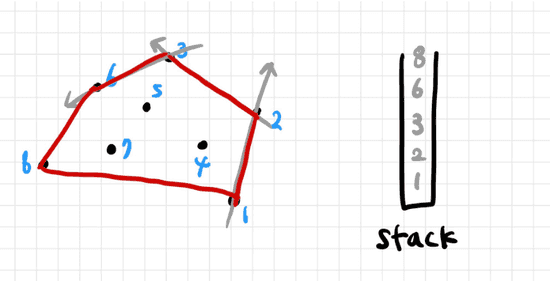 3
6
5
2
7
4
8
1
8
6
3
2
1
stack